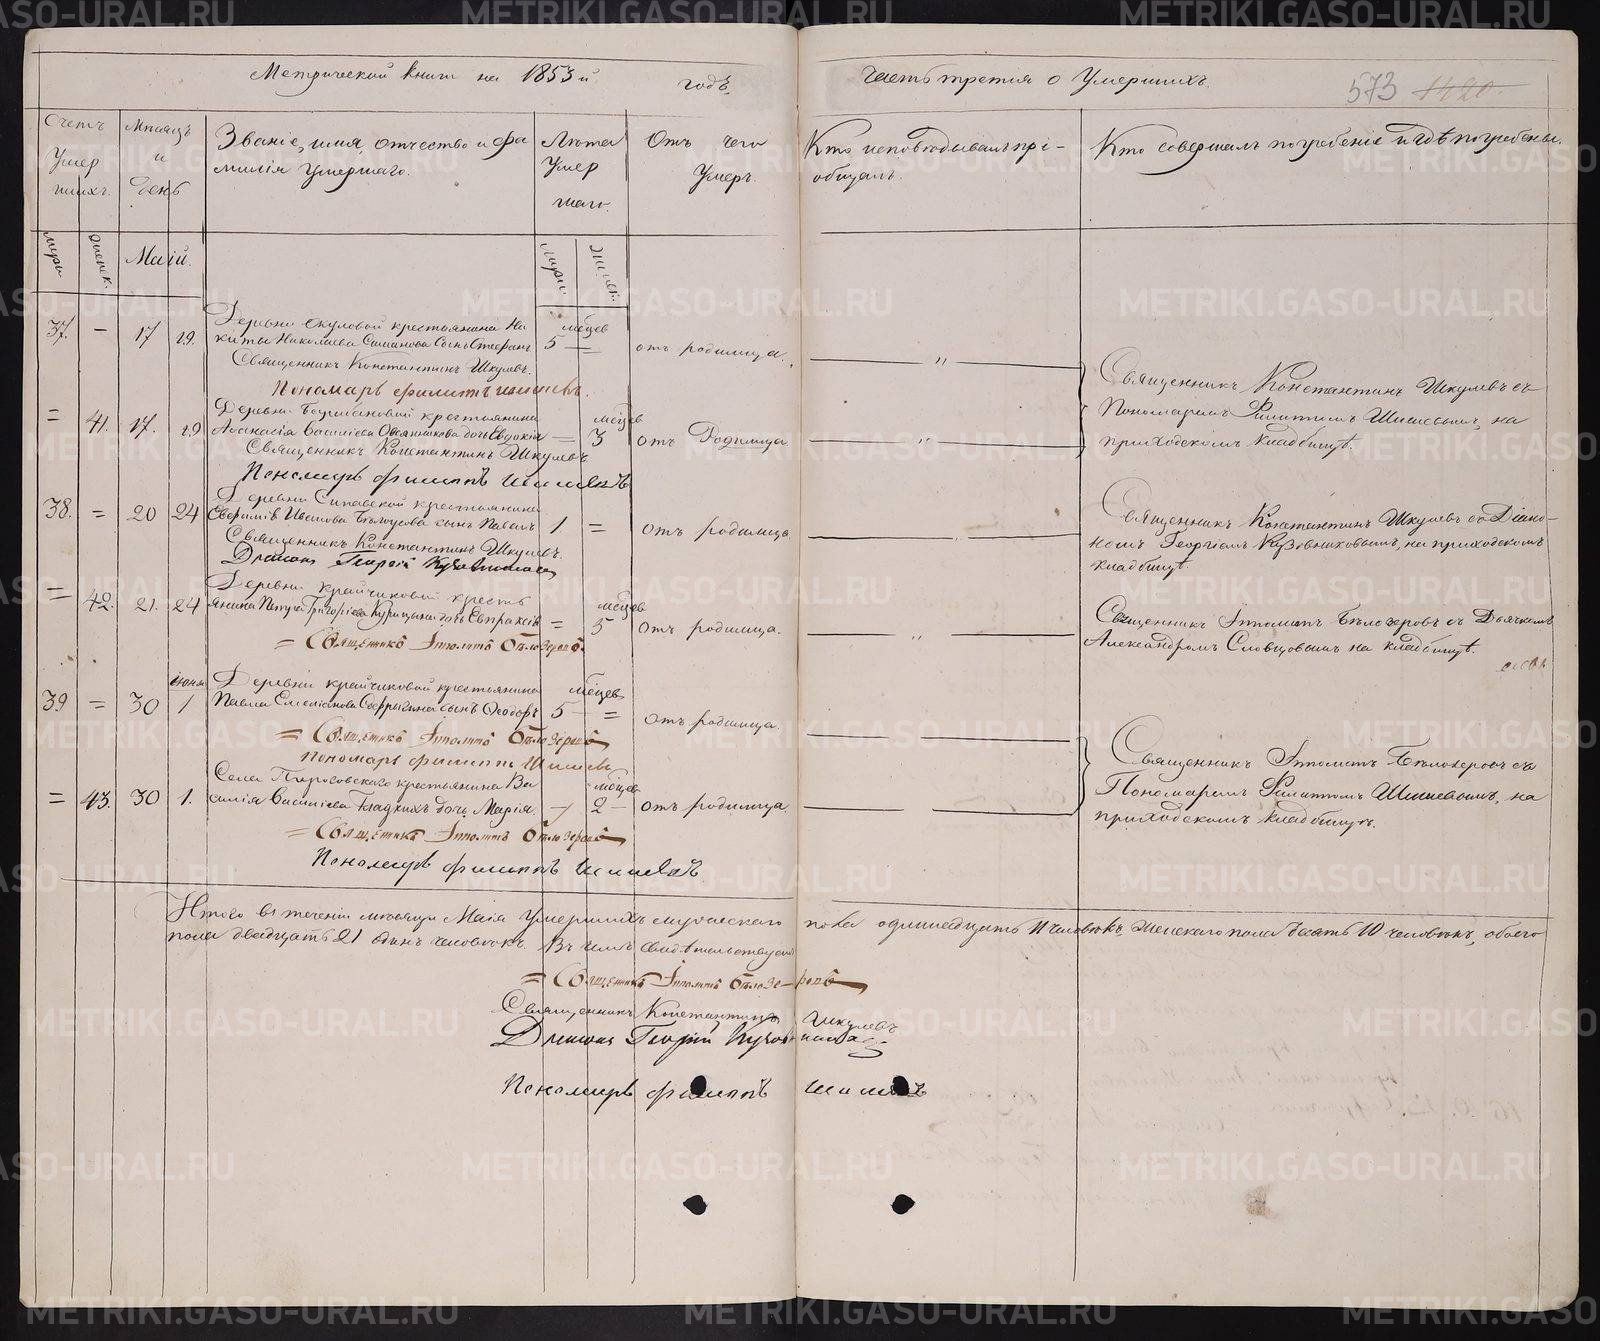 Метрической книги на 1853й годъ,
часть третія о Умершихъ.
573 1420
Счетъ Умершихъ.
Мѣсяцъ и день
Званіе, имя, отчество и фамилія умершаго.
Лѣта Умершаго.
Отъ чего Умеръ.
Кто исповѣдывалъ и пріобщалъ.
Кто совершалъ погребеніе и гдѣ погребены.
Маій.
37. – 17 19
Деревни Окуловой крестьянина Никиты Николаева сынъ Стефанъ
мѣсцев
5 =
отъ родимца.
Священникъ Константинъ Шкулевъ.
Пономарь Филиппъ Шишевъ.
= 41. 17. 19
крестьянина Афанасія Василіева дочь Евдокія
мѣсцев
– 3
отъ Родимца
Священникъ Константинъ Шкулевъ
Пономарь Филиппъ Шишевъ
Священникъ Константинъ Шкулевъ съ
Пономаремъ Филиппомъ Шишевымъ, на
приходскомъ кладбищѣ.
38. = 20 24
Деревни крестьянина
Иванова Бѣлоусова сынъ Павелъ
1 =
отъ родимца
Священникъ Константинъ Шкулевъ.
Діаконъ Георгій Кузовниковъ
Священникъ Константинъ Шкулевъ съ Діако-
номъ Георгіемъ Кузовниковымъ, на приходскомъ
кладбищѣ.
= 42. 21. 24
Деревни Крайчиковой кресть
янина Петра Григоріева Курицына дочь Евпраксія
мѣсцев
= 5
отъ родимца.
= Священникъ Ипполитъ Бѣлозеровъ.
Священникъ Ипполитъ Бѣлозеровъ съ Дьячкомъ
Александромъ Словцовымъ на кладбищѣ.
39 = 30 Іюня 1
Деревни Крайчиковой крестьянина
Павла сынъ Феодоръ
мѣсцев
5 =
отъ родимца.
= Священникъ Ипполитъ Бѣлозеровъ
Пономарь Филиппъ Шишевъ
= 43. 30 1.
Села Пироговскаго крестьянина Ва
силія Василіева Гладкихъ дочь Марія
мѣсцев
2
отъ родимца.
= Священникъ Ипполитъ Бѣлозеровъ
Пономарь Филиппъ Шишевъ
Священникъ Ипполитъ Бѣлозеровъ съ
Пономаремъ Филиппомъ Шишевымъ, на
приходскомъ кладбищѣ.
Итого въ теченіи мѣсяца Маія Умершихъ мужескаго пола одиннадцать 11 человѣкъ женскаго пола десять 10 человѣкъ, обоего
пола двадцать 21 одинъ человѣкъ. Въ чемъ свидѣтельствуемъ
= Священникъ Ипполитъ Бѣлозеровъ
Священникъ Константинъ Шкулевъ
Діаконъ Георгій Кузовниковъ
Пономарь Филиппъ Шишевъ
METRIKI.GASO-URAL.RU